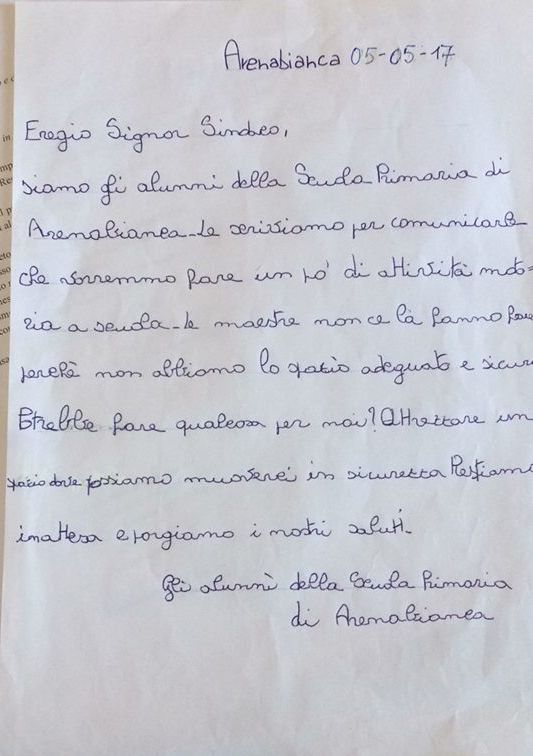 Arenabianca 05-05-17
Eregio Signor Sindaco,
siamo gli alunni della Scuola Primaria di
Arenabianca. Le scriviamo per comunicarle
che vorremmo fare un pò di attività moto=
ria a scuola. Le maestre non ce là fanno fare
perchè non abbiamo lo spazio adeguato e sicur
Potrebbe fare qualcosa per noi? Attrezzare un
spazio dove possiamo muoverci in sicurezza Restiamo
in attesa e porgiamo i nostri saluti.
Gli alunni della Scuola Primaria
di Arenabianca